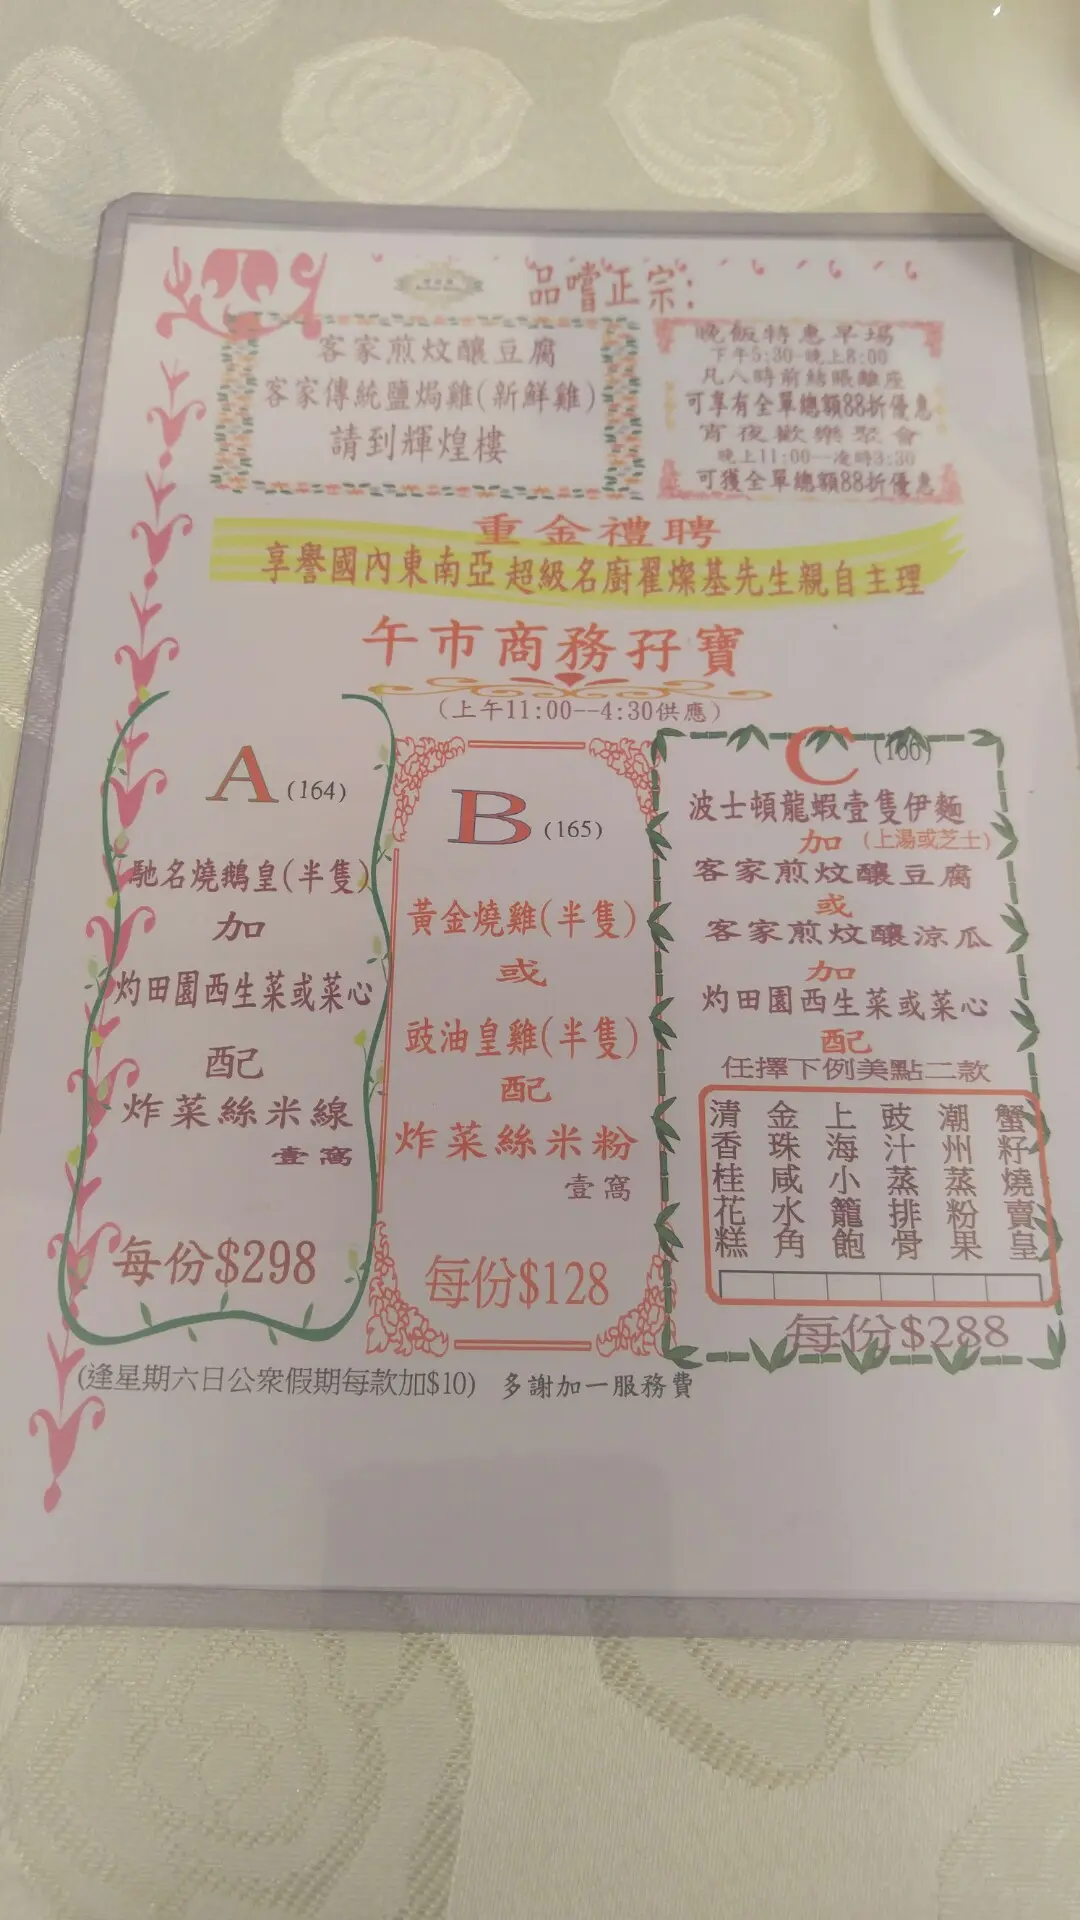 品嚐正宗:
客家煎炆釀豆腐
客家傳統鹽焗雞(新鮮雞)
請到輝煌樓
晚飯特惠早場
下午5:30-晚上8:00
凡八時前結賬離座
可享有全單總額88折優惠
宵夜歡樂聚會
晚上11:00—凌時3:30
可獲全單總額88折優惠
重金禮聘
享譽國內東南亞超級名廚翟燦基先生親自主理
午市商務孖寶
(上午11:00--4:30供應)
A (164)
馳名燒鵝皇(半隻)
加
灼田園西生菜或菜心
配
炸菜絲米線
壹窩
每份$298
B (165)
黃金燒雞(半隻)
或
豉油皇雞(半隻)
配
炸菜絲米粉
壹窩
每份$128
C (166)
波士頓龍蝦壹隻伊麵
加 (上湯或芝士)
客家煎炆釀豆腐
或
客家煎炆釀涼瓜
加
灼田園西生菜或菜心
配
任擇下例美點二款
清香桂花糕
金珠咸水角
上海小籠飽
豉汁蒸排骨
潮州蒸粉果
蟹籽燒賣皇
每份$288
(逢星期六日公眾假期每款加$10) 多謝加一服務費